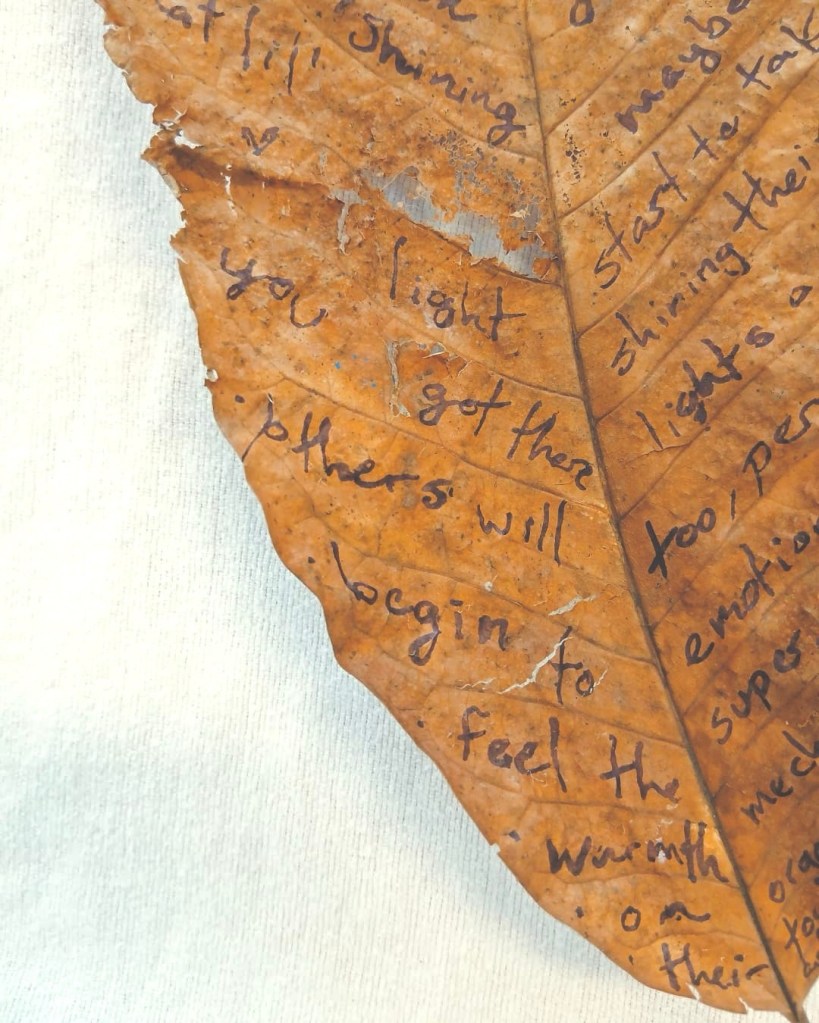 shining
you light
got there
others will
begin to
feel the
warmth
on
their
maybe
start to tak
shining thei
lights a
too, per
emotion
super
mech